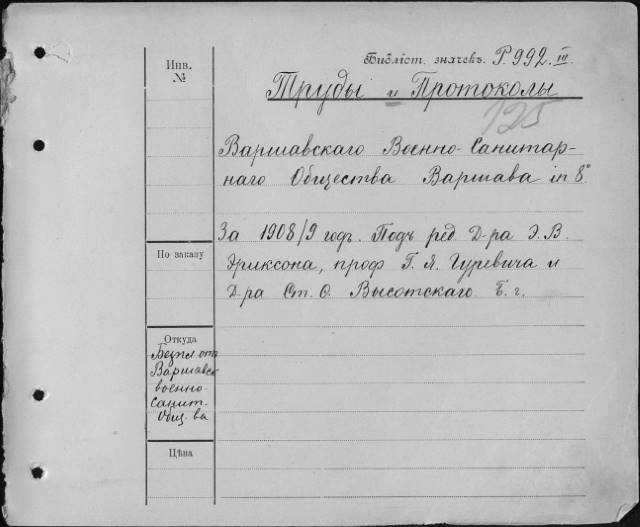 Библіот. значекъ. Р.992.III.
Инв.
№
Труды и Протоколы
125
Варшавскаго Военно-Санитар-
наго Общества Варшава in 8°
За 1908/9 годъ. Подъ ред. Д-ра Э. В.
По заказу
Эриксона, проф. Г. Я. Гуревича и
Д-ра Ст. О. Высотскаго. Б. г.
Откуда
Безпл. отъ
Варшавск
военно-
Санит.
Общ-ва
Цѣна